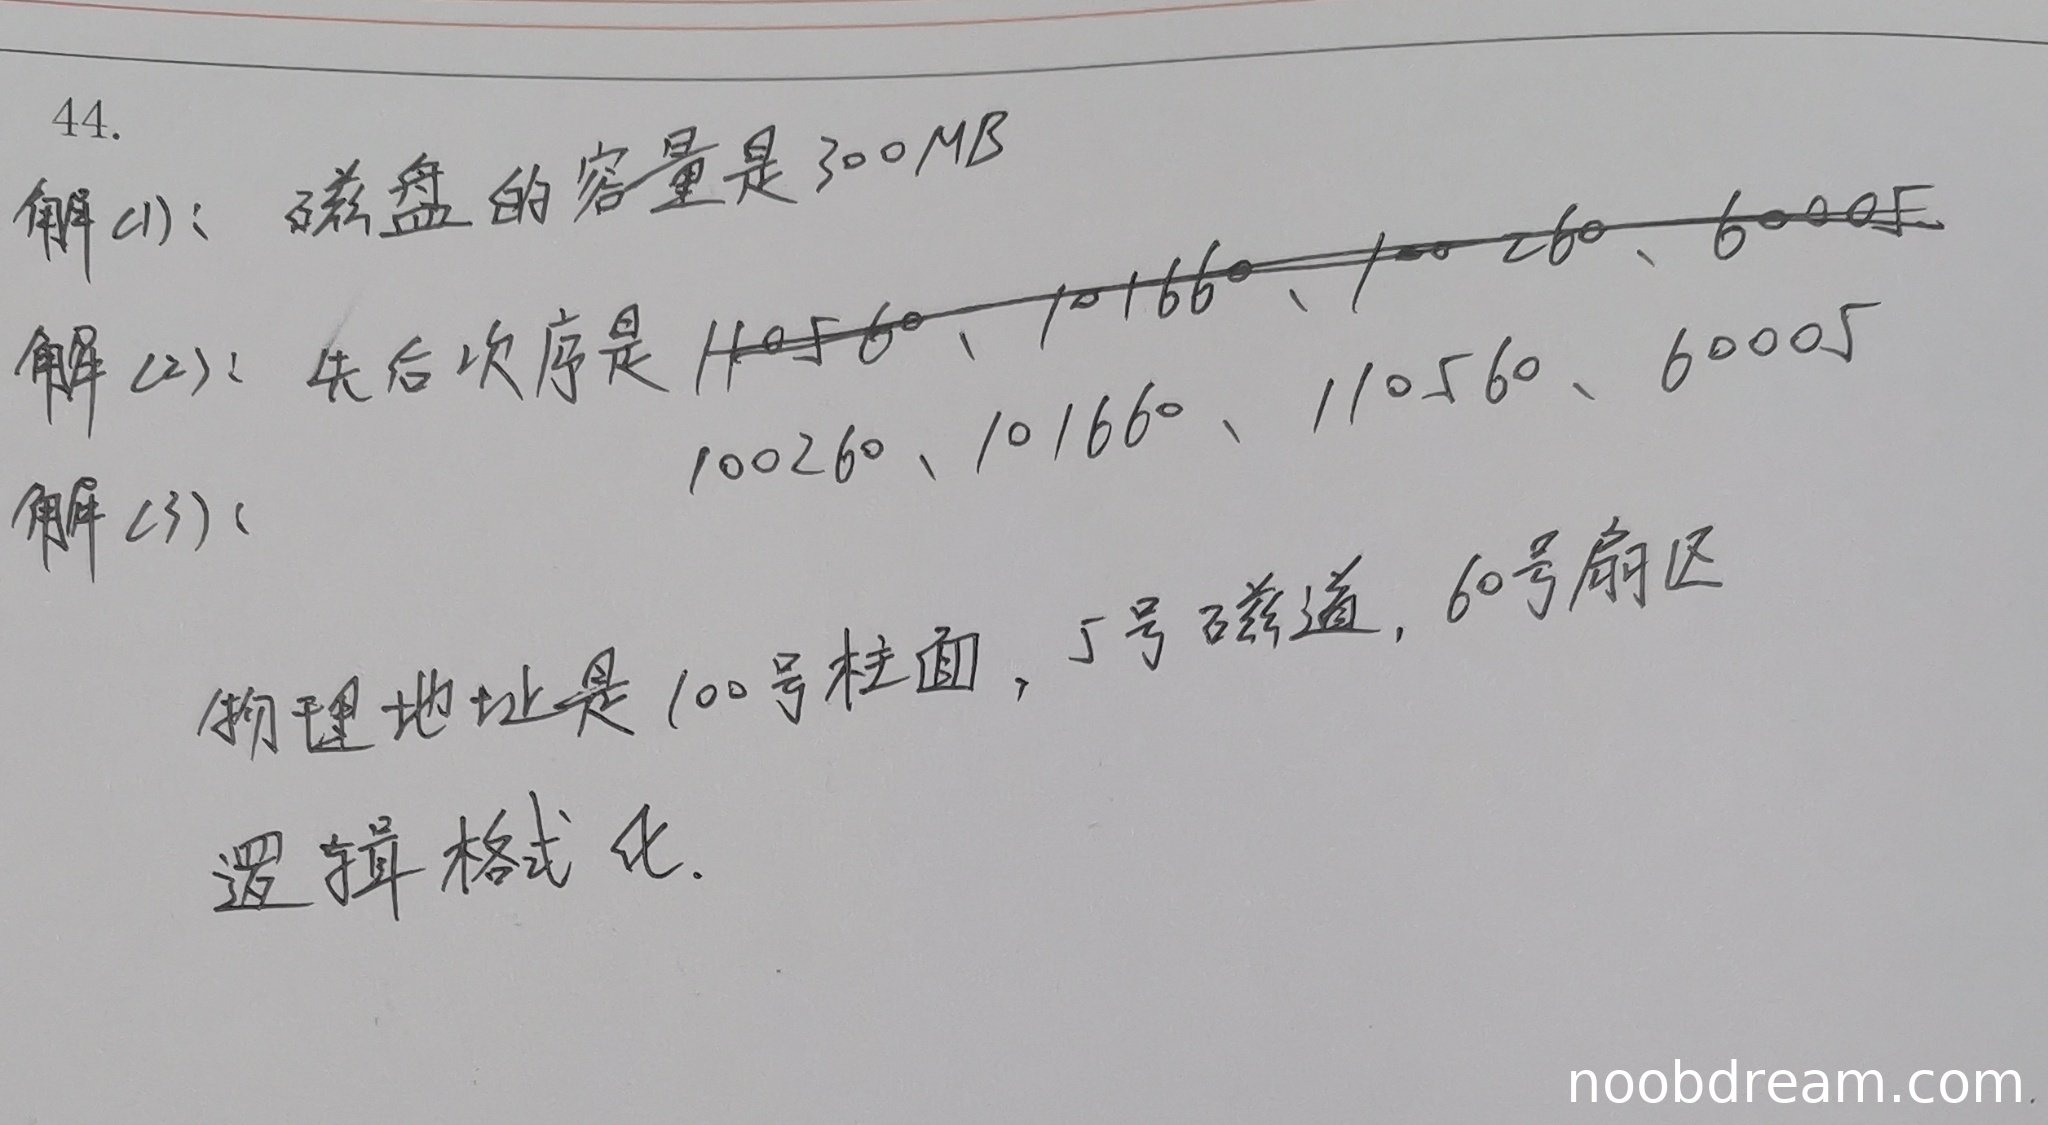 44.
解(1): 磁盘的容量是300MB
解(2): 先后次序是 110560、101660、100260、60005
100260、101660、110560、60005
解(3):
物理地址是100号柱面,5号磁道,60号扇区
逻辑格式化.
noobdream.com